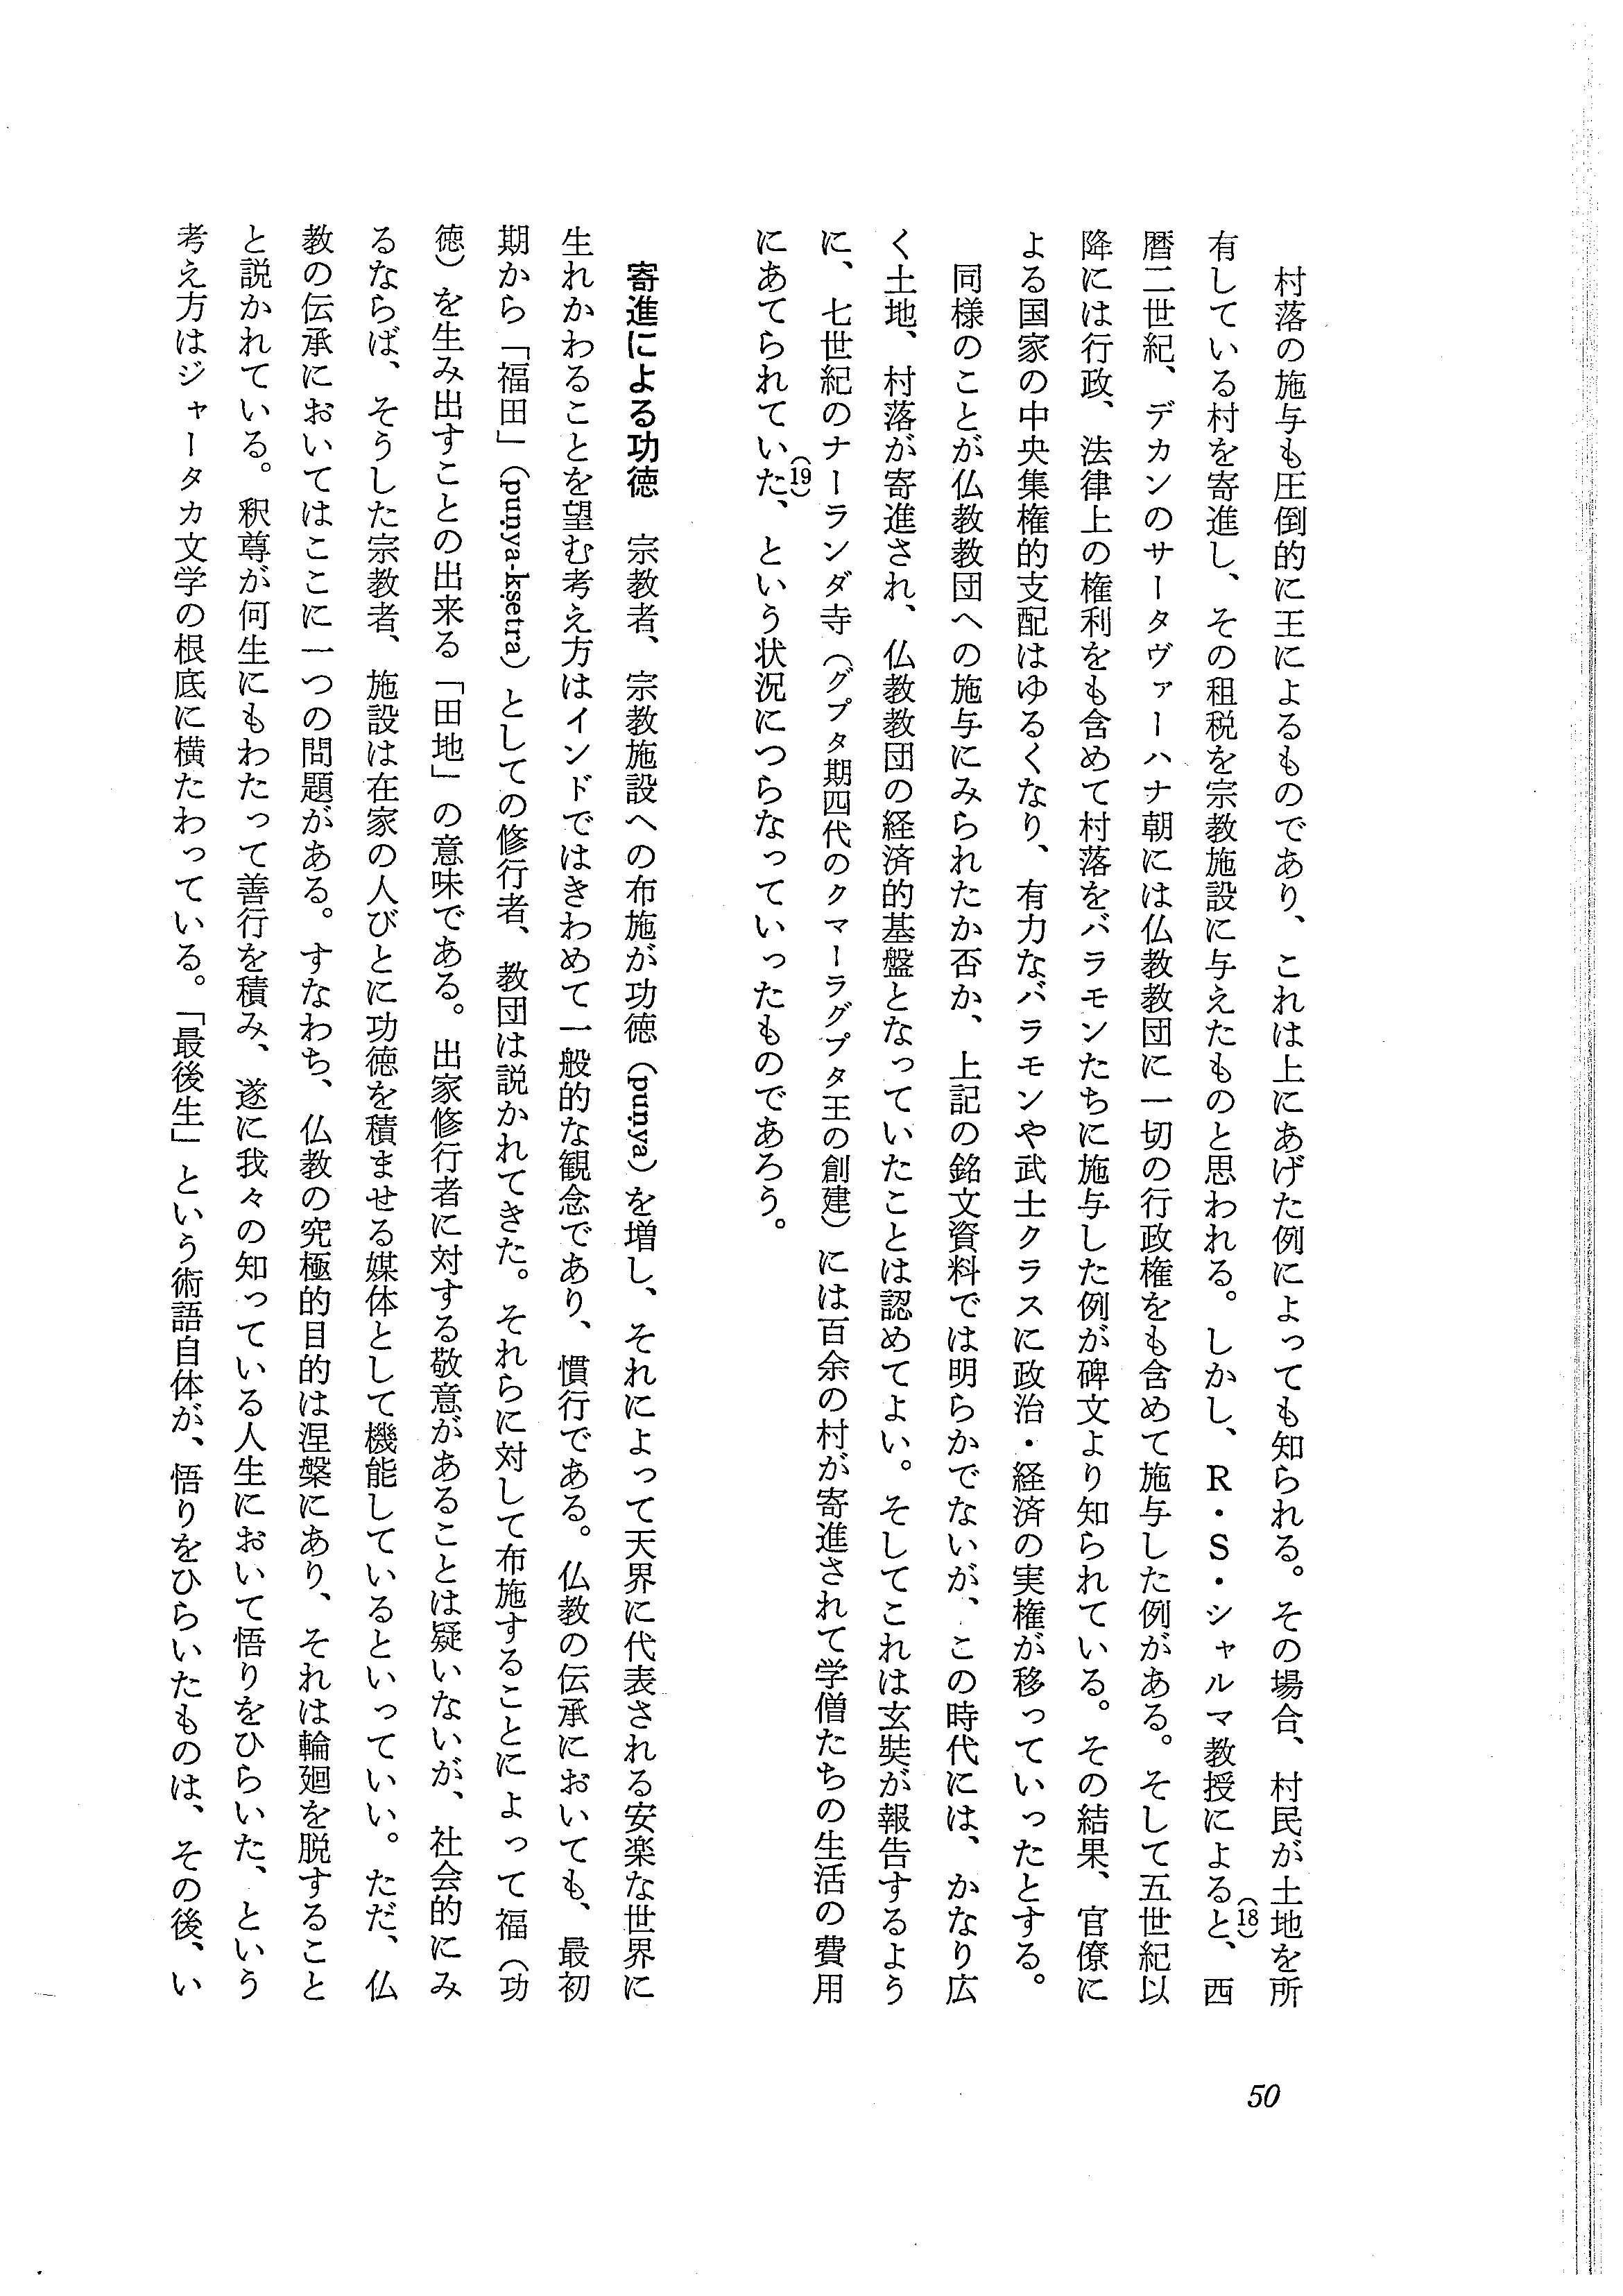 村落の施与も圧倒的に王によるものであり、これは上にあげた例によっても知られる。その場合、村民が土地を所
有している村を寄進し、その租税を宗教施設に与えたものと思われる。しかし、R・S・シャルマ教授によると(18)、西
暦二世紀、デカンのサータヴァーハナ朝には仏教教団に一切の行政権をも含めて施与した例がある。そして五世紀以
降には行政、法律上の権利をも含めて村落をバラモンたちに施与した例が碑文より知られている。その結果、官僚に
よる国家の中央集権的支配はゆるくなり、有力なバラモンや武士クラスに政治・経済の実権が移っていったとする。
同様のことが仏教教団への施与にみられたか否か、上記の銘文資料では明らかでないが、この時代には、かなり広
く土地、村落が寄進され、仏教教団の経済的基盤となっていたことは認めてよい。そしてこれは玄奘が報告するよう
に、七世紀のナーランダ寺（グプタ期四代のクマーラグプタ王の創建）には百余の村が寄進されて学僧たちの生活の費用
にあてられていた(19)、という状況につらなっていったものであろう。
寄進による功徳　宗教者、宗教施設への布施が功徳（puṇya）を増し、それによって天界に代表される安楽な世界に
生れかわることを望む考え方はインドではきわめて一般的な観念であり、慣行である。仏教の伝承においても、最初
期から「福田」（puṇya-kṣetra）としての修行者、教団は説かれてきた。それらに対して布施することによって福（功
徳）を生み出すことの出来る「田地」の意味である。出家修行者に対する敬意があることは疑いないが、社会的にみ
るならば、そうした宗教者、施設は在家の人びとに功徳を積ませる媒体として機能しているといっていい。ただ、仏
教の伝承においてはここに一つの問題がある。すなわち、仏教の究極的目的は涅槃にあり、それは輪廻を脱すること
と説かれている。釈尊が何生にもわたって善行を積み、遂に我々の知っている人生において悟りをひらいた、という
考え方はジャータカ文学の根底に横たわっている。「最後生」という術語自体が、悟りをひらいたものは、その後、い
50